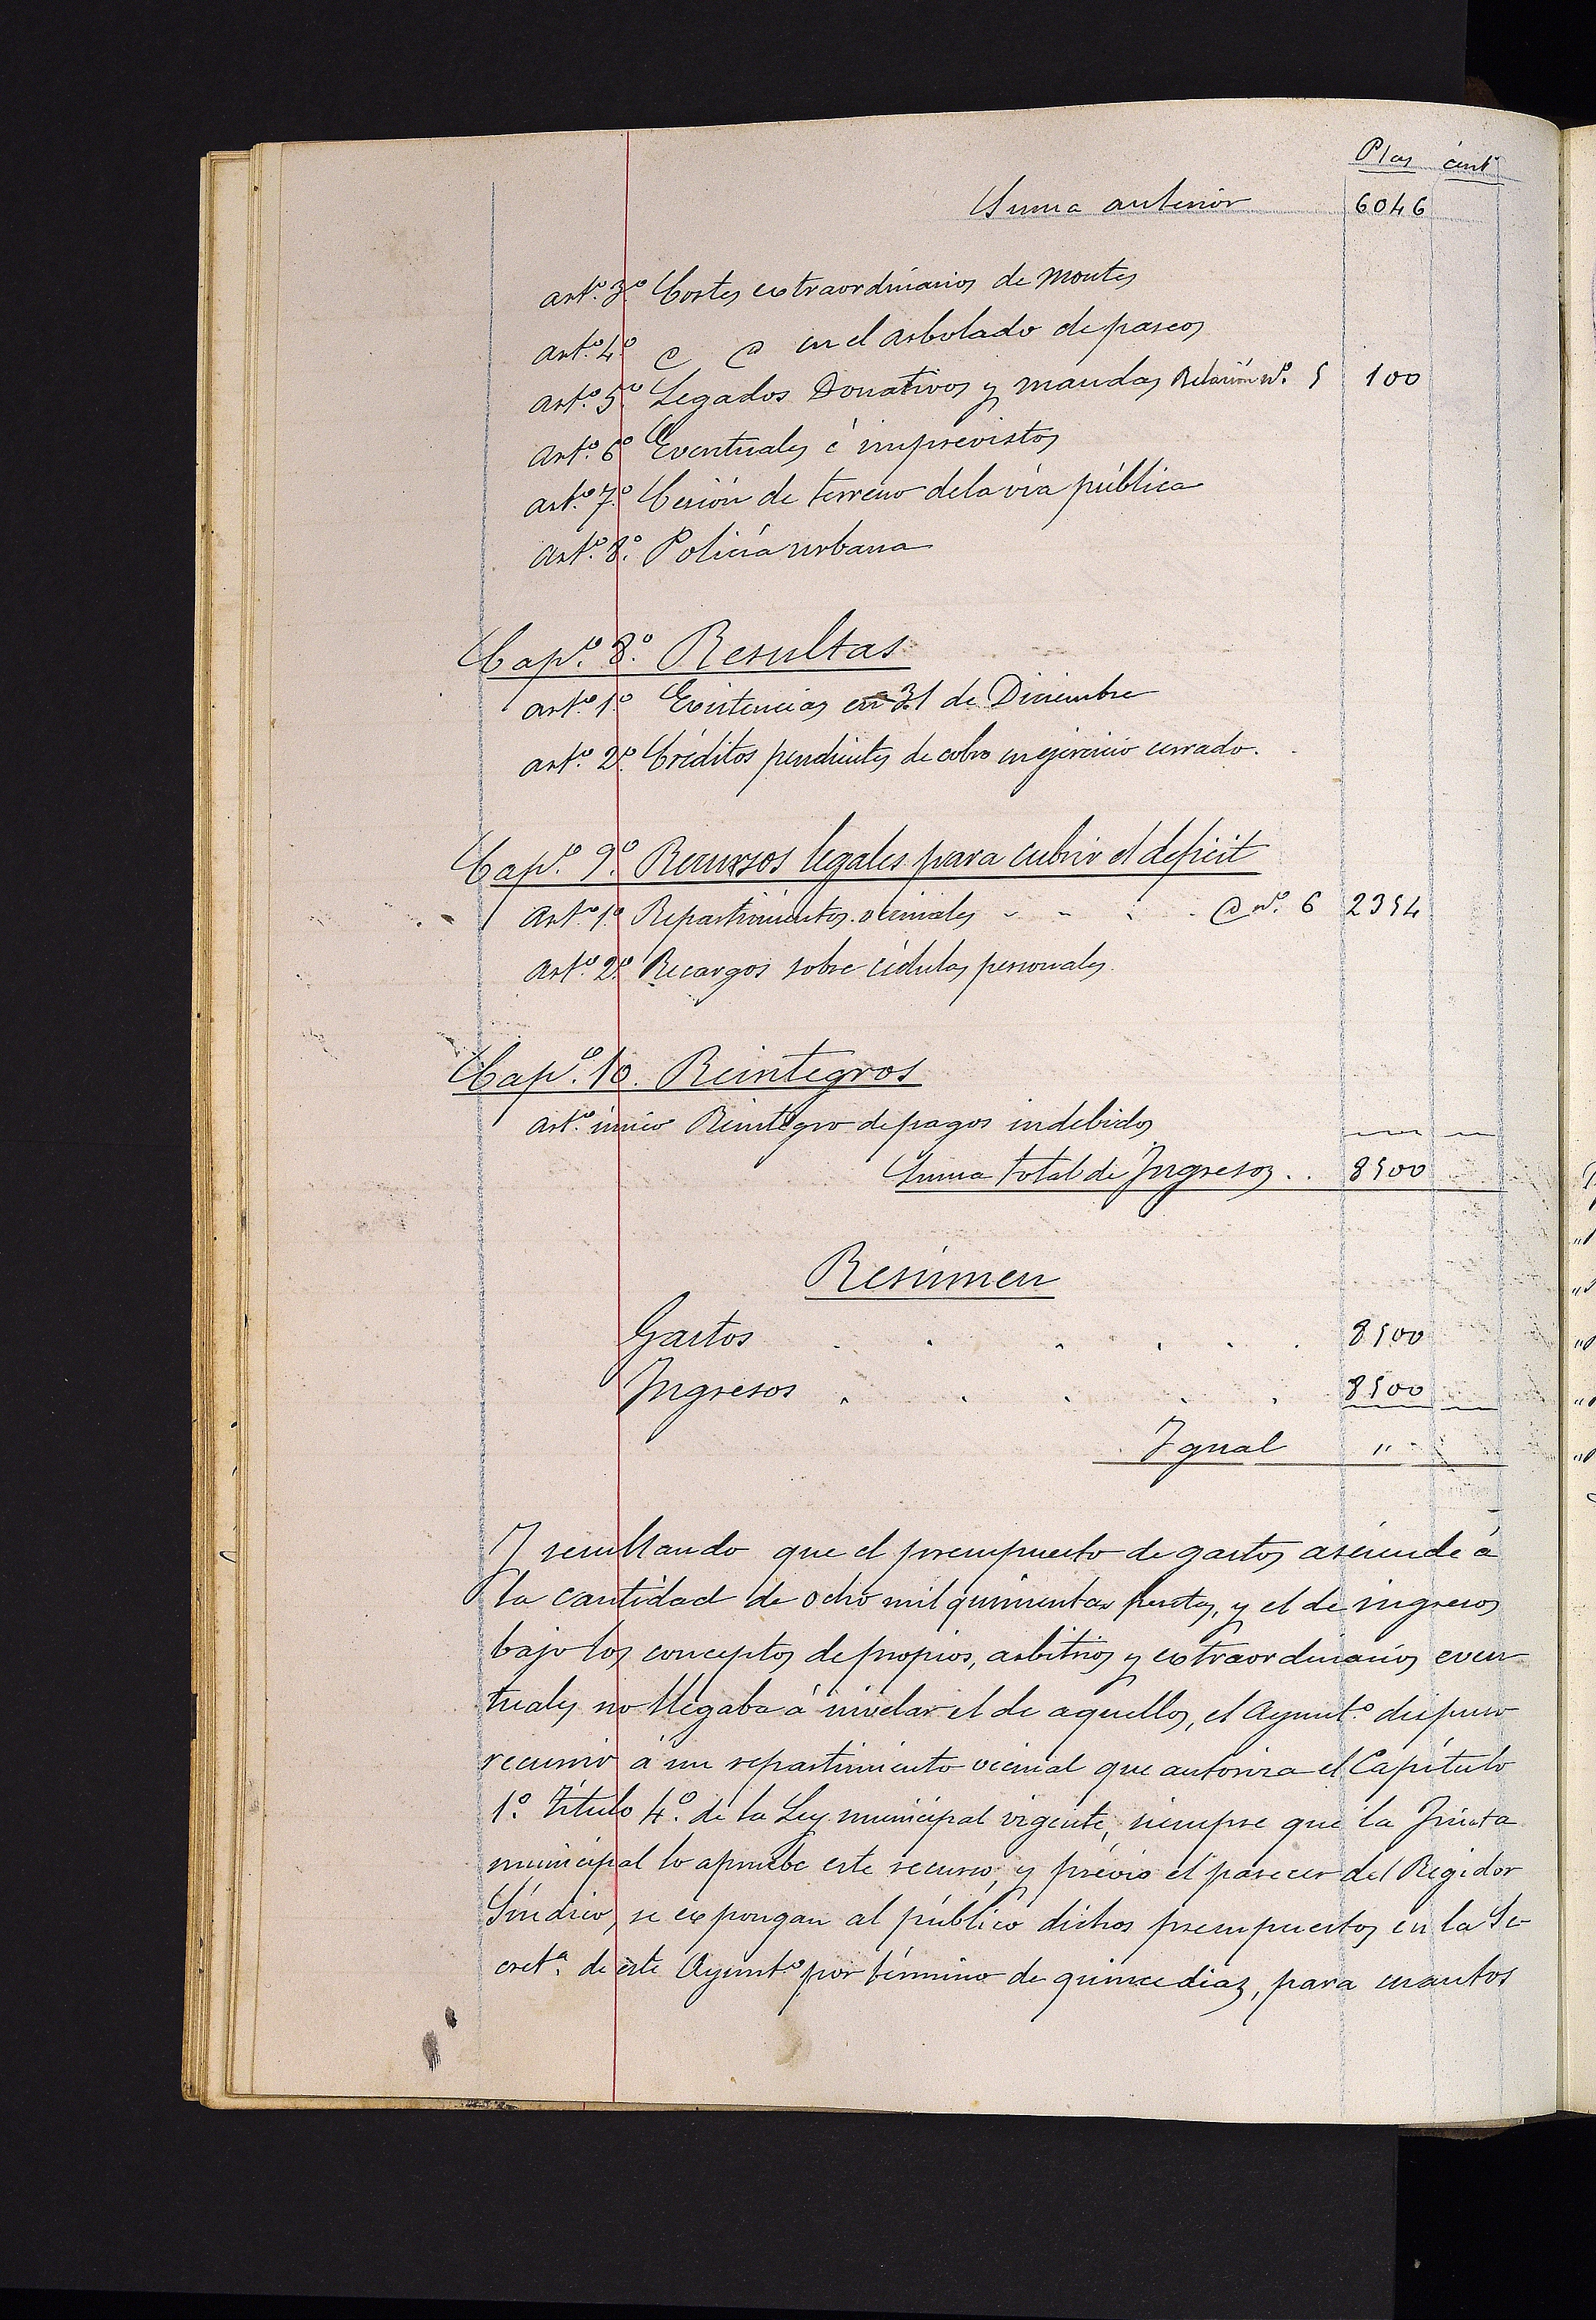 Ptas cént.
Suma anterior 6046
art.º 3.º Cortes extraordinarios de montes
art.º 4.º @ @ en el arbolado de paseos
art.º 5.º Legados Donativos y mandas Relación nº. 5 100
art.º 6.º Eventuales é imprevistos
art.º 7.º Cesión de terreno de la vía pública
art.º 8.º Policía urbana
Cap.º 8.º Resultas
art.º 1.º Existencias en 31 de Diciembre
art.º 2.º Créditos pendientes de cobro en ejercicio cerrado.
Cap.º 9.º Recursos legales para cubrir el deficit
art.º 1.º Repartimientos vecinales - - - - @ nº. 6 2354
art.º 2.º Recargos sobre cédulas personales.
Cap.º 10. Reintegros
art.º único Reintegro de pagos indebidos
Suma total de Ingresos . . 8500
Resúmen
Gastos . . . . . . 8500
Ingresos . . . . . 8500
Igual "
Y resultando que el presupuesto de gastos asciende á
la cantidad de ocho mil quinientas pesetas, y el de ingresos
bajo los conceptos de propios, arbitrios y extraordinarios even
tuales no llegaba á nivelar el de aquellos, el Ayunt.º dispuso
recurrir á un repartimiento vecinal que autoriza el Capítulo
1.º Título 4.º de la Ley municipal vigente, siempre que la Junta
municipal lo apruebe este recurso, y prévio el parecer del Regidor
Síndico, se expongan al público dichos presupuestos en la Se-
cret.ª de este Ayunt.º por término de quince diaz, para cuantos